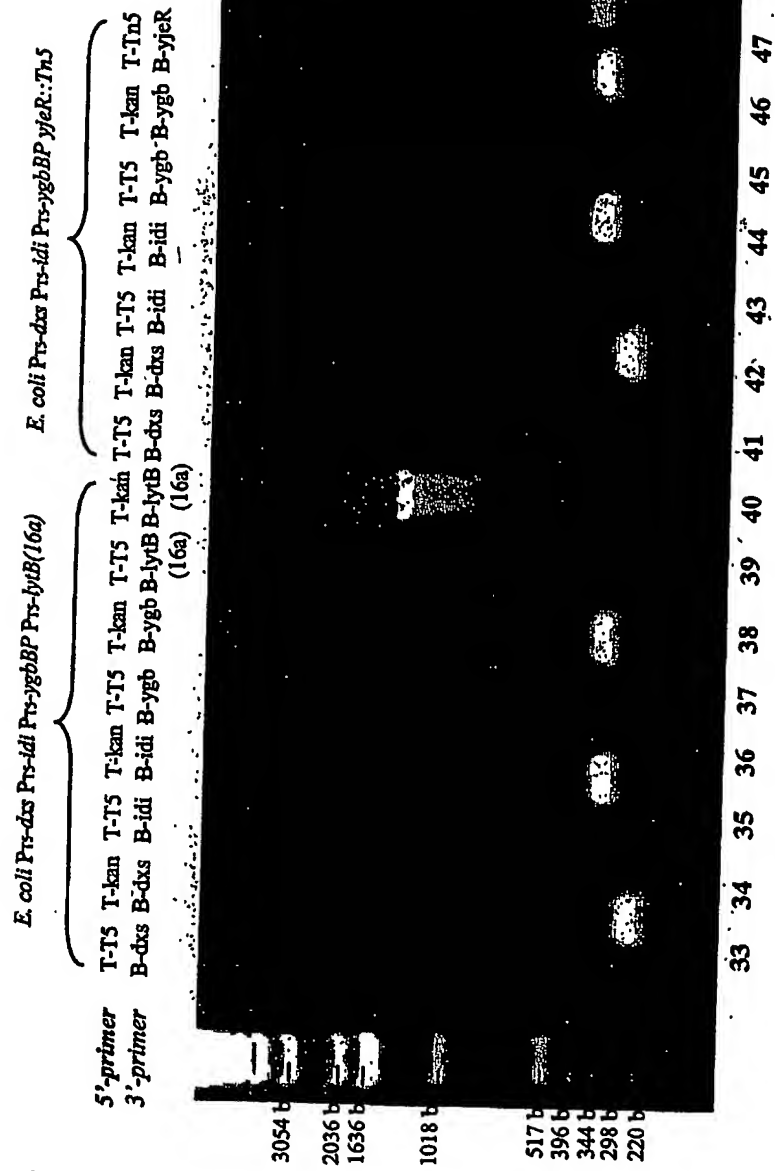 E. coli PT5-dxs PT5-idi PT5-ygbBP PT5-lytB(16a)
E. coli PT5-dxs PT5-idi PT5-ygbBP yjeR::Tn5
5'-primer T-T5 T-kan T-T5 T-kan T-T5 T-kan T-T5 T-kan T-T5 T-kan T-T5 T-kan T-T5 T-kan T-Tn5
3'-primer B-dxs B-dxs B-idi B-idi B-ygb B-ygb B-lytB B-lytB B-dxs B-dxs B-idi B-idi B-ygb B-ygb B-yjeR
(16a) (16a)
3054 b
2036 b
1636 b
1018 b
517 b
396 b
344 b
298 b
220 b
33 34 35 36 37 38 39 40 41 42 43 44 45 46 47